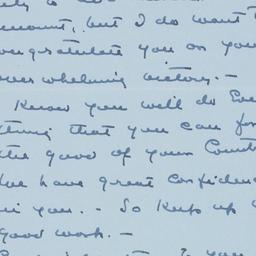 mount, but I do want t
ongratulate you on you
over whelming victory. —
Know you will do Eve
thing that you can for
the good of your Count
We have great confidenc
in you. - So keep up
good work. —